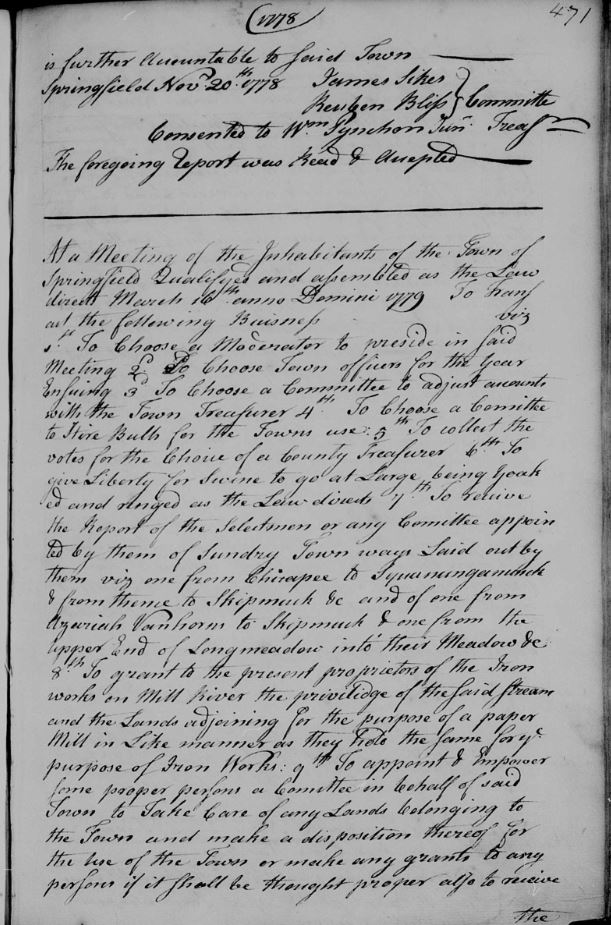 1778
471
is further Accountable to said Town
Springfield Novr 20th 1778 James Sikes
Reuben Bliss } Committe
Consented to Wm Pynchon Junr. Treasr
The foregoing Report was Read & Accepted
At a Meeting of the Inhabitants of the Town of
Springfield Qualifyed and assembled as the Law
directs March 16th anno Domini 1779 To Trans
act the following Buisness viz
1st To Choose a Moderator to preside in said
Meeting 2d To Choose Town officers for the Year
Ensuing 3d To Choose a Committee to adjust acounts
with the Town Treasurer 4th To Choose a Comittee
to Hire Bulls for the Towns use: 5th To collect the
votes for the Choice of a County Treasurer 6th To
give Liberty for Swine to go at Large being Yoak
ed and ringed as the Law directs 7th To recive
the Report of the Selectmen or any Comittee appoin
ted by them of Sundry Town ways Laid out by
them viz one from Chicapee to
& from thence to Skipmuck &c and of one from
Azariah Vanhorns to Skipmuck & one from the
upper End of Longmeadow into their Meadow &c
8th To grant to the present proprietors of the Iron
works on Mill River the priviledge of the said stream
and the Lands adjoining for the purpose of a paper
Mill in Like manner as they hold the same for ye
purpose of Iron Works: 9th To appoint & Empower
some proper persons a Comittee in behalf of said
Town to Take Care of any Lands belonging to
the Town and make a disposition thereof for
the use of the Town or make any grants to any
persons if it shall be thought proper also to receive
the